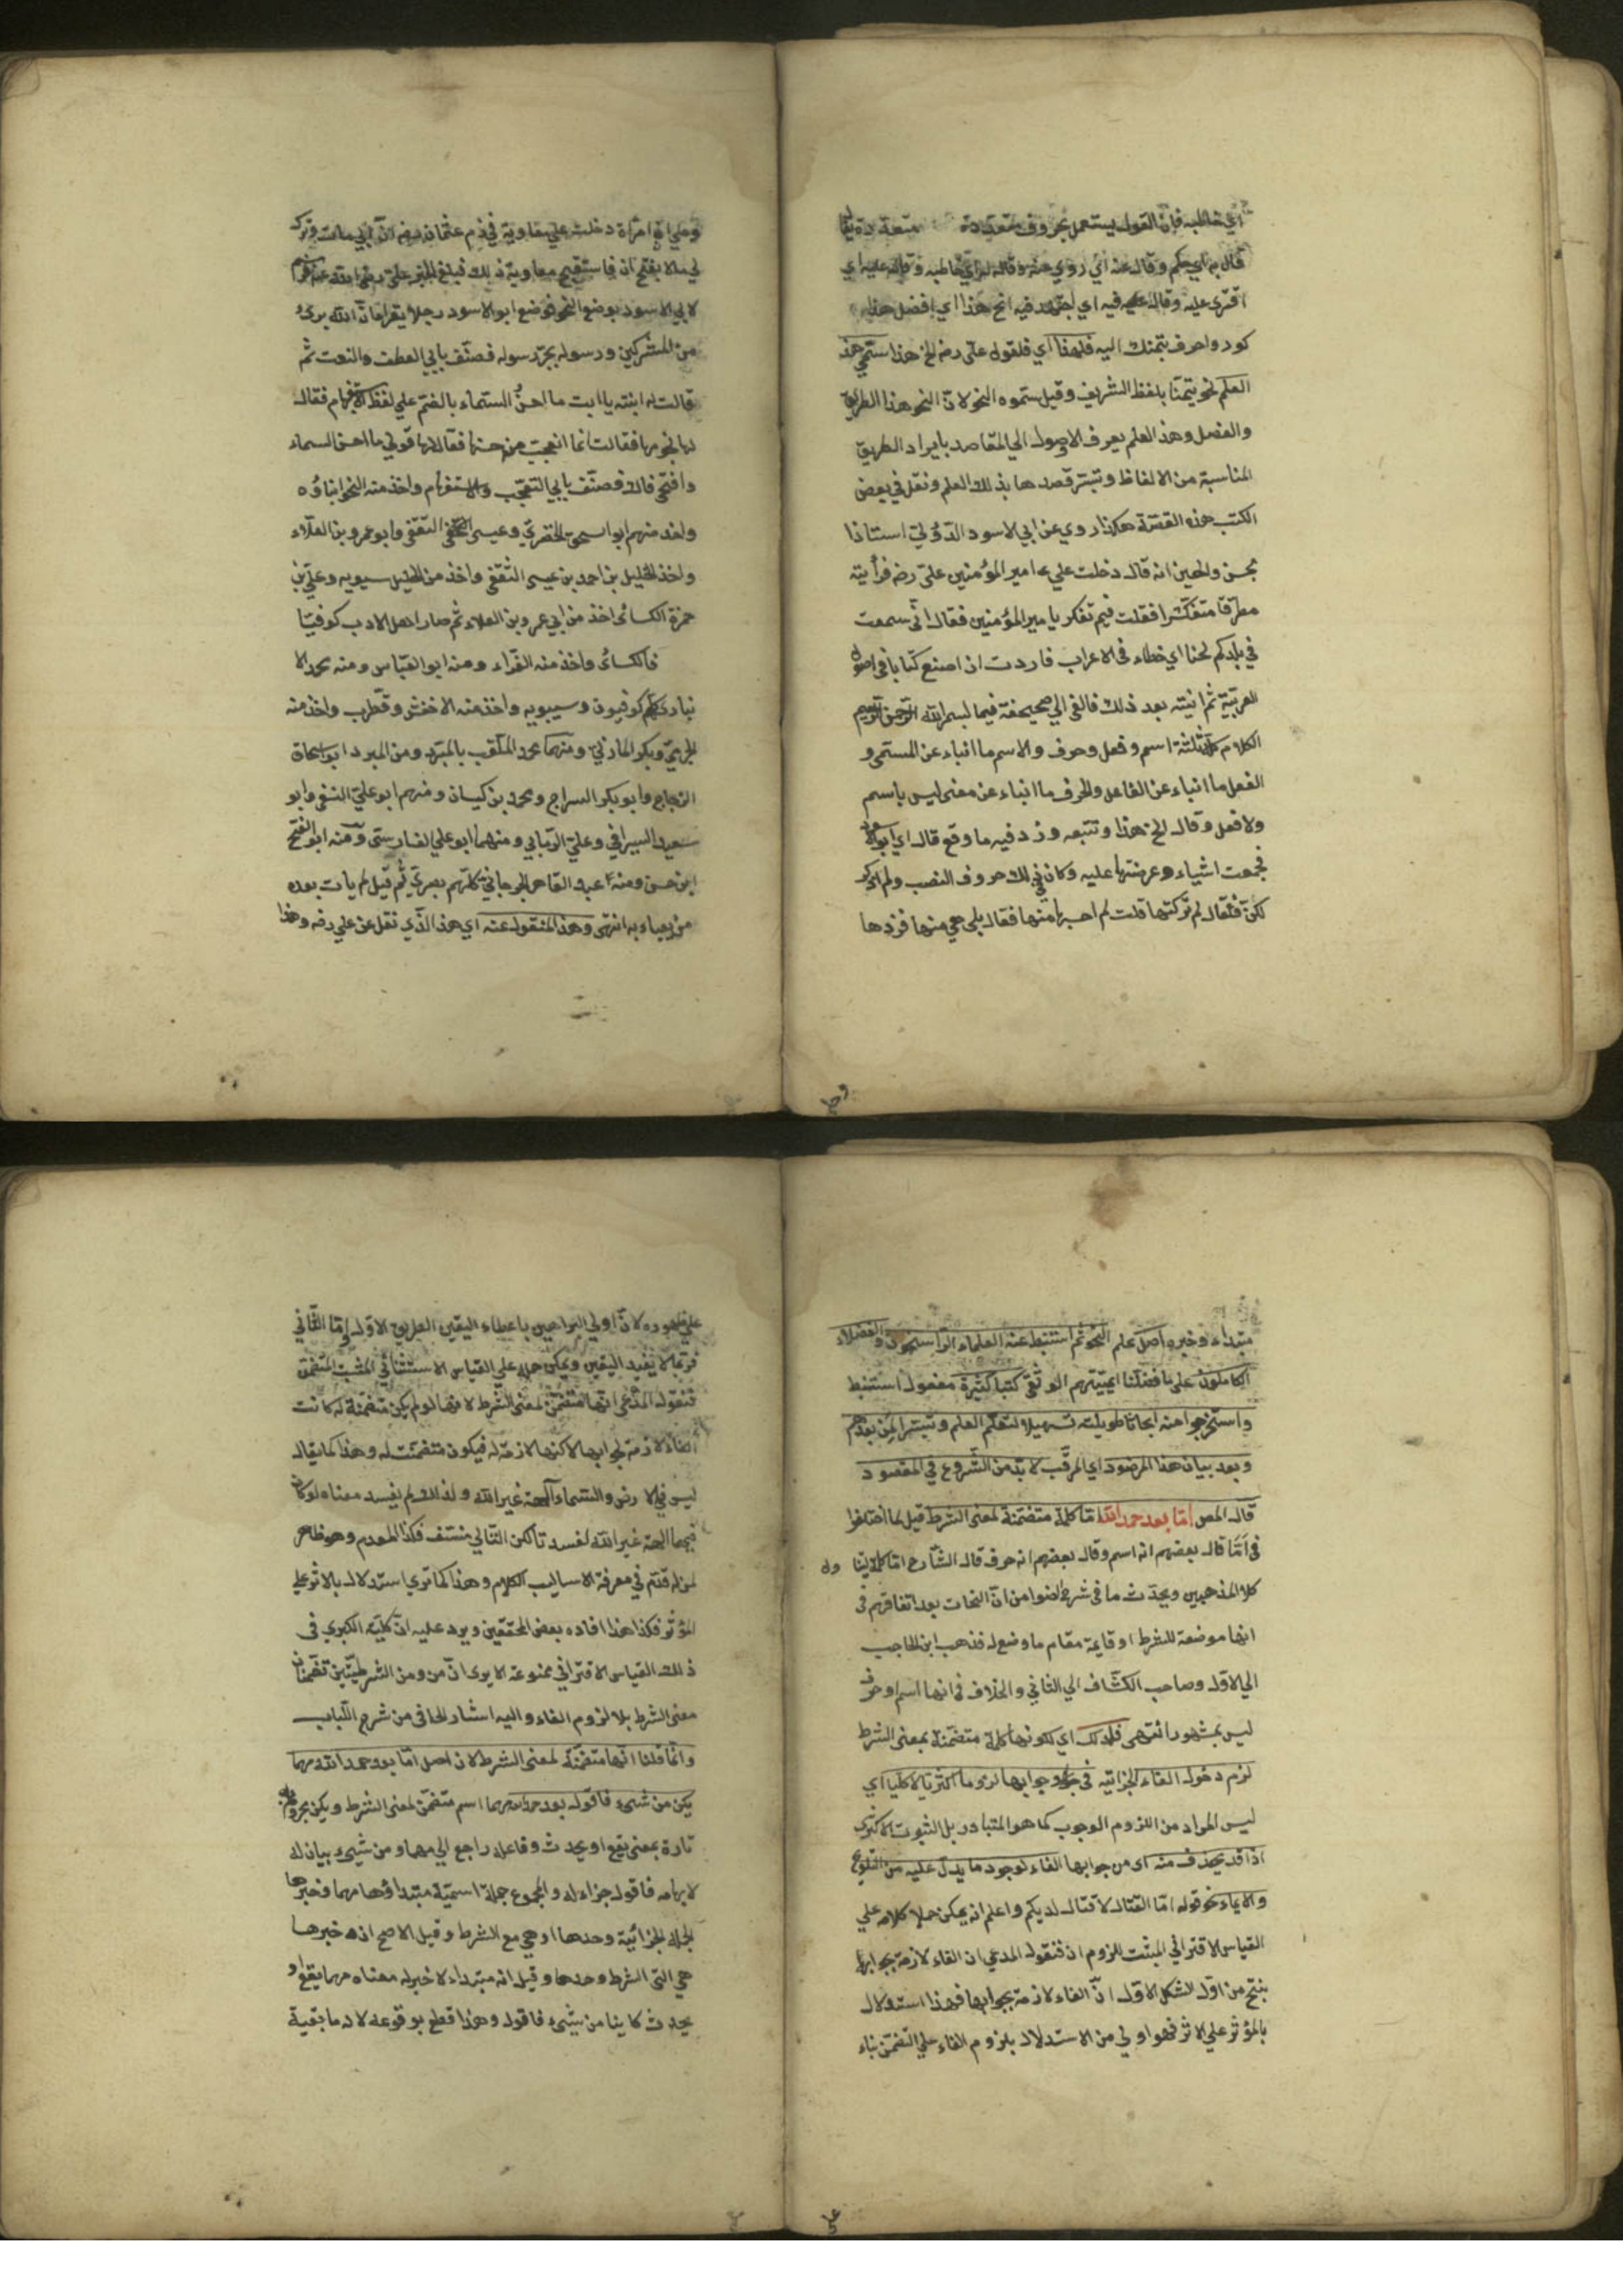 اي خاطبه فان القول يستعمل بحروف متعددة يقال
قال به اي حكم وقال عنه اي روي عنه وقال له اي خاطبه وقال عليه اي
افترى عليه وقال فيه اي اجتهد فيه انح هذا اي افضل هذا
واحرف بتمنك اليه فلهذا اي فلقول علي رضه انح هذا سمي هذا
العلم نحو تيمنا بلفظ الشريف وقيل سموه النحو لان النحو هذا الطريق
والفصل وهذا العلم يعرف الاصول الي المقاصد بايراد الطريق
المناسبة من الالفاظ وتيسر قصدها بذلك العلم ونقل في بعض
الكتب هذه القصة هكذا روي عن ابي الاسود الدؤلي استاذا
بحسن والحسين انه قال دخلت علي امير المؤمنين علي رضه فرأيته
مطرقا متفكرا فقلت فيم تفكر يا امير المؤمنين فقال اني سمعت
في بلدكم لحنا اي خطاء في الاعراب فاردت ان اصنع كتابا في اصول
العربية ثم اتيته بعد ذلك فالقى الي صحيفة فيها بسم الله الرحمن الرحيم
الكلام كله ثلثة اسم وفعل وحرف والاسم ما انباء عن المسمى و
الفعل ما انباء عن الفاعل والحرف ما انباء عن معنى ليس باسم
ولا فعل وقال انح هذا وتتبعه وزد فيه ما وقع قال اي ابو الاسود
فجمعت اشياء وعرضتها عليه وكان في ذلك حروف النصب ولم اذكر
لكن فقال لم تركتها قلت لم احسبها منها فقال بلى هي منها فزدها
وحكي ان امرأة دخلت علي معاوية في ذم عثمان رضه ان ابي مات وترك
لي مالا بفتح ان فاستقبح معاوية ذلك فبلغ الخبر علي رضي الله عنه فرسم
لابي الاسود بوضع النحو فوضع ابو الاسود رجلا يقرأ ان الله برئ
من المشركين ورسوله بجر رسوله فصنف بابي العطف والنعت ثم
قالت له ابنته يا ابت ما احسن السماء بالضم علي لفظ الاستفهام فقال
لها نجومها فقالت انما اتعجب من حسنها فقال لها قولي ما احسن السماء
وافتحي فاك فصنف بابي التعجب والاستفهام واخذ منه النحو ابناؤه
واخذ منهم ابو اسحق الحضرمي وعيسى الثقفي وابو عمرو بن العلاء
واخذ الخليل بن احمد بن عيسى الثقفي واخذ من الخليل سيبويه وعلي بن
حمزة الكسائي اخذ من ابي عمرو بن العلاء ثم صار اهل الادب كوفيا
فالكسائي واخذ منه الفراء ومنه ابو العباس ومنه محمد الا
نباري كلهم كوفيون وسيبويه واخذ منه الاخفش وقطرب واخذ منه
الجرمي وبكر المازني ومنهما محمد الملقب بالمبرد ومن المبرد ابو اسحاق
الزجاج وابو بكر السراج ومحمد بن كيسان ومنهم ابو علي النسفي وابو
سعيد السيرافي وعلي الرماني ومنهما ابو علي الفارسي ومنه ابو الفتح
ابن جني ومنه عبد القاهر الجرجاني كلهم بصري ثم قيل لم يأت بعده
من يعباء به انتهى وهذا المنقول عنه اي هذا الذي نقل عن علي رضه وهذا
مبتداء وخبره اصل علم النحو ثم استنبط عنه العلماء الراسخون والفضلاء
الكاملون علي ما فضلنا كتبا كثيرة مفعول استنبط
واستخرجوا منه ابحاثا طويلة تسهيلا لتعلم العلم وتيسيرا لمن بعدهم
وبعد بيان هذا المرصود اي المرقب لا بد من الشروع في المقصود
قال المص اما بعد حمد الله اما كلمة متضمنة لمعنى الشرط قيل لما اختلفوا
في اما قال بعضهم انه اسم وقال بعضهم انه حرف قال الشارح اما كلمة
كلا المذهبين ويحدث ما في شرح الضوء من ان النحات بعد اتفاقهم في
انها موضعة للشرط او قايمة مقام ما وضع له فذهب ابن الحاجب
الي الاول وصاحب الكشاف الي الثاني والخلاف في انها اسم او حرف
ليس بمشهور انتهى فلذلك اي لكونها كلمة متضمنة بمعنى الشرط
لزم دخول الفاء الجزائيه في جوابها لزوما اكثريا لا كليا اي
ليس المراد من اللزوم الوجوب كما هو المتبادر بل الثبوت الاكثري
اذ قد يحذف منه اي من جوابها الفاء لوجود ما يدل عليه من التلويح
والايماء نحو قوله اما القتال لا قتال لديكم واعلم انه يمكن حمل كلامه علي
القياس الاقتراني المثبت للزوم ان فنقول المدعي ان الفاء لازمة بجوابها
ينتج من اول الشكل الاول ان الفاء لازمة بجوابها فهذا استدلال
بالمؤثر علي الاثر فهو اولي من الاستدلال بلزوم الفاء علي التضمن بناء
علي ظهوره لان اولي البراهين باعطاء اليقين الطريق الاول واما الثاني
فربما لا يفيد اليقين ويمكن حمله علي القياس الاستثنائي المثبت التضمن
فنقول المدعي انها متضمن لمعنى الشرط لانها لو لم يكن متضمنة له كانت
الفاء لازمة لجوابها لاكنها لازمة له فيكون متضمنت له وهذا كما يقال
ليس في الارض والسماء آلهة غير الله ولذلك لم يفسد معناه لو كان
فيهما آلهة غير الله لفسدتا لكن الثاني منتف فكذا المقدم وهو ظاهر
لمن له قدم في معرفة الاساليب الكلام وهذا كما ترى استدلال بالاثر علي
المؤثر فكذا هذا افاده بعض المحققين ويرد عليه ان كلية الكبرى في
ذلك القياس الاقتراني ممنوعة الا يرى ان من ومن الشرطيتين تضمنان
معنى الشرط بلا لزوم الفاء واليه اشار الحافي من شرح اللباب
وانما قلنا انها متضمنة لمعنى الشرط لان اصل اما بعد حمد الله مهما
يكن من شيء فاقول بعد حمد الله مهما اسم متضمن لمعنى الشرط ويكن مجزوم
تارة بمعنى يقع او يحدث وفاعله راجع الي مهما ومن شيء بيان له
لابهامه فاقول جزاء له والمجموع جملة اسمية مبتداؤها مهما وخبرها
الجملة الجزائية وحدها او هي مع الشرط وقيل الاصح ان خبرها
هي التي الشرط وحدها وقيل انه مبتداء لا خبر له معناه مهما يقع او
يحدث كاينا من شيء فاقول وهذا قطع بوقوعه لانه ما بقية